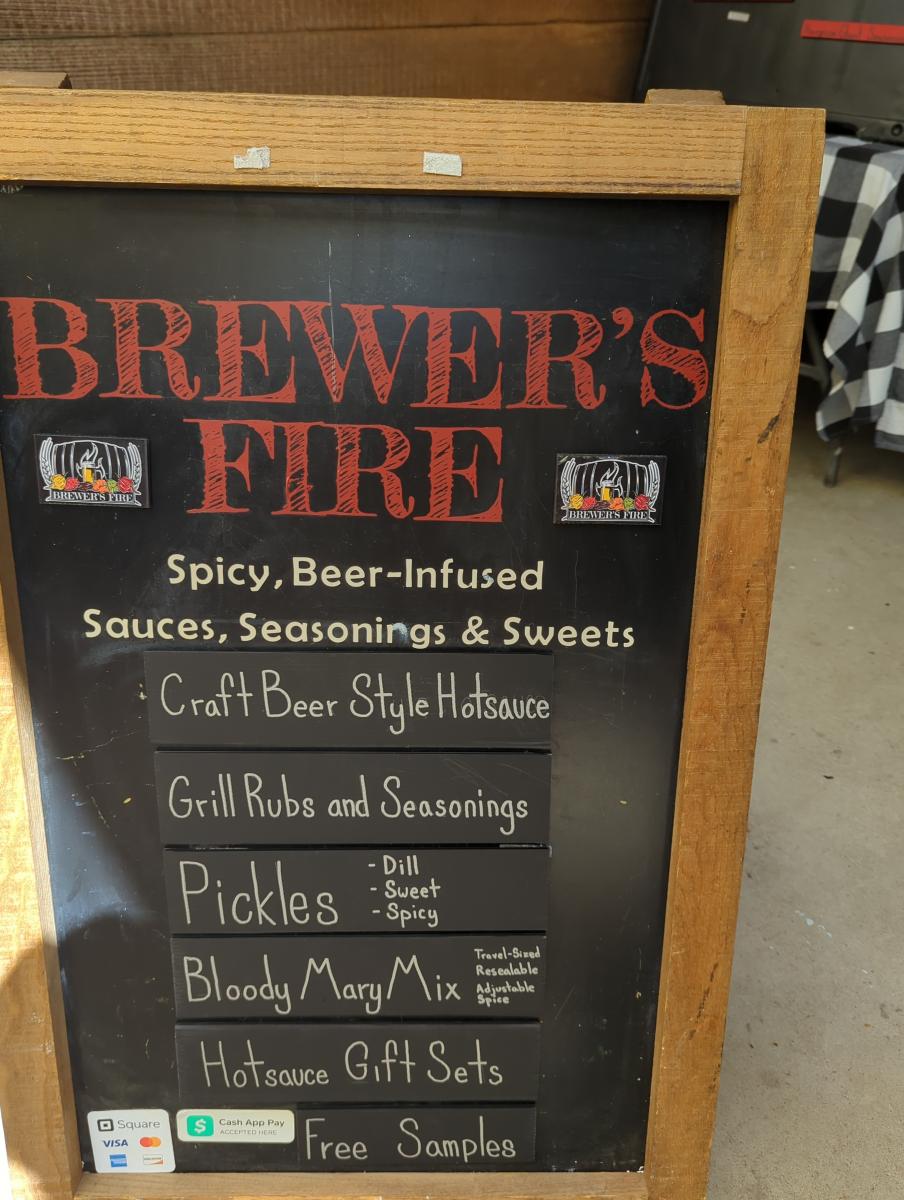 BREWER'S
FIRE
BREWER'S FIRE
BREWER'S FIRE
Spicy, Beer-Infused
Sauces, Seasonings & Sweets
Craft Beer Style Hotsauce
Grill Rubs and Seasonings
Pickles
- Dill
- Sweet
- Spicy
Bloody Mary Mix
Travel-Sized
Resealable
Adjustable
Spice
Hotsauce Gift Sets
Square
VISA
Cash App Pay
ACCEPTED HERE
Free Samples